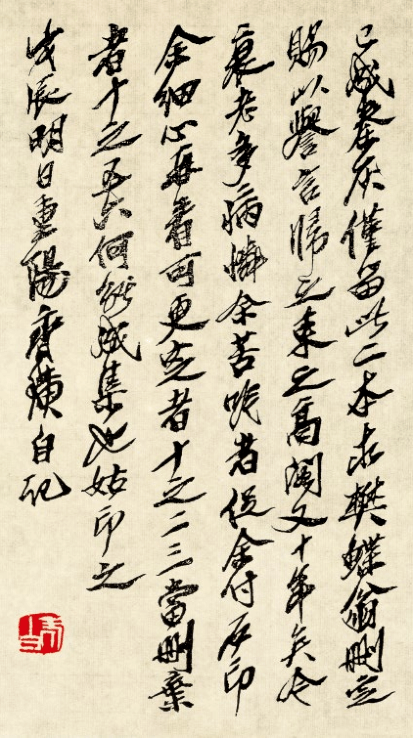 已成秦灰僅留此二本求樊鰈翁刪定
賜以譽言歸之束之高閣又十年矣今
衰老多病憐余苦吟者促余付石印
余細心再看可更定者十之二三當刪棄
者十之五六何能成集也姑印之
戊辰明日重陽齊璜自記